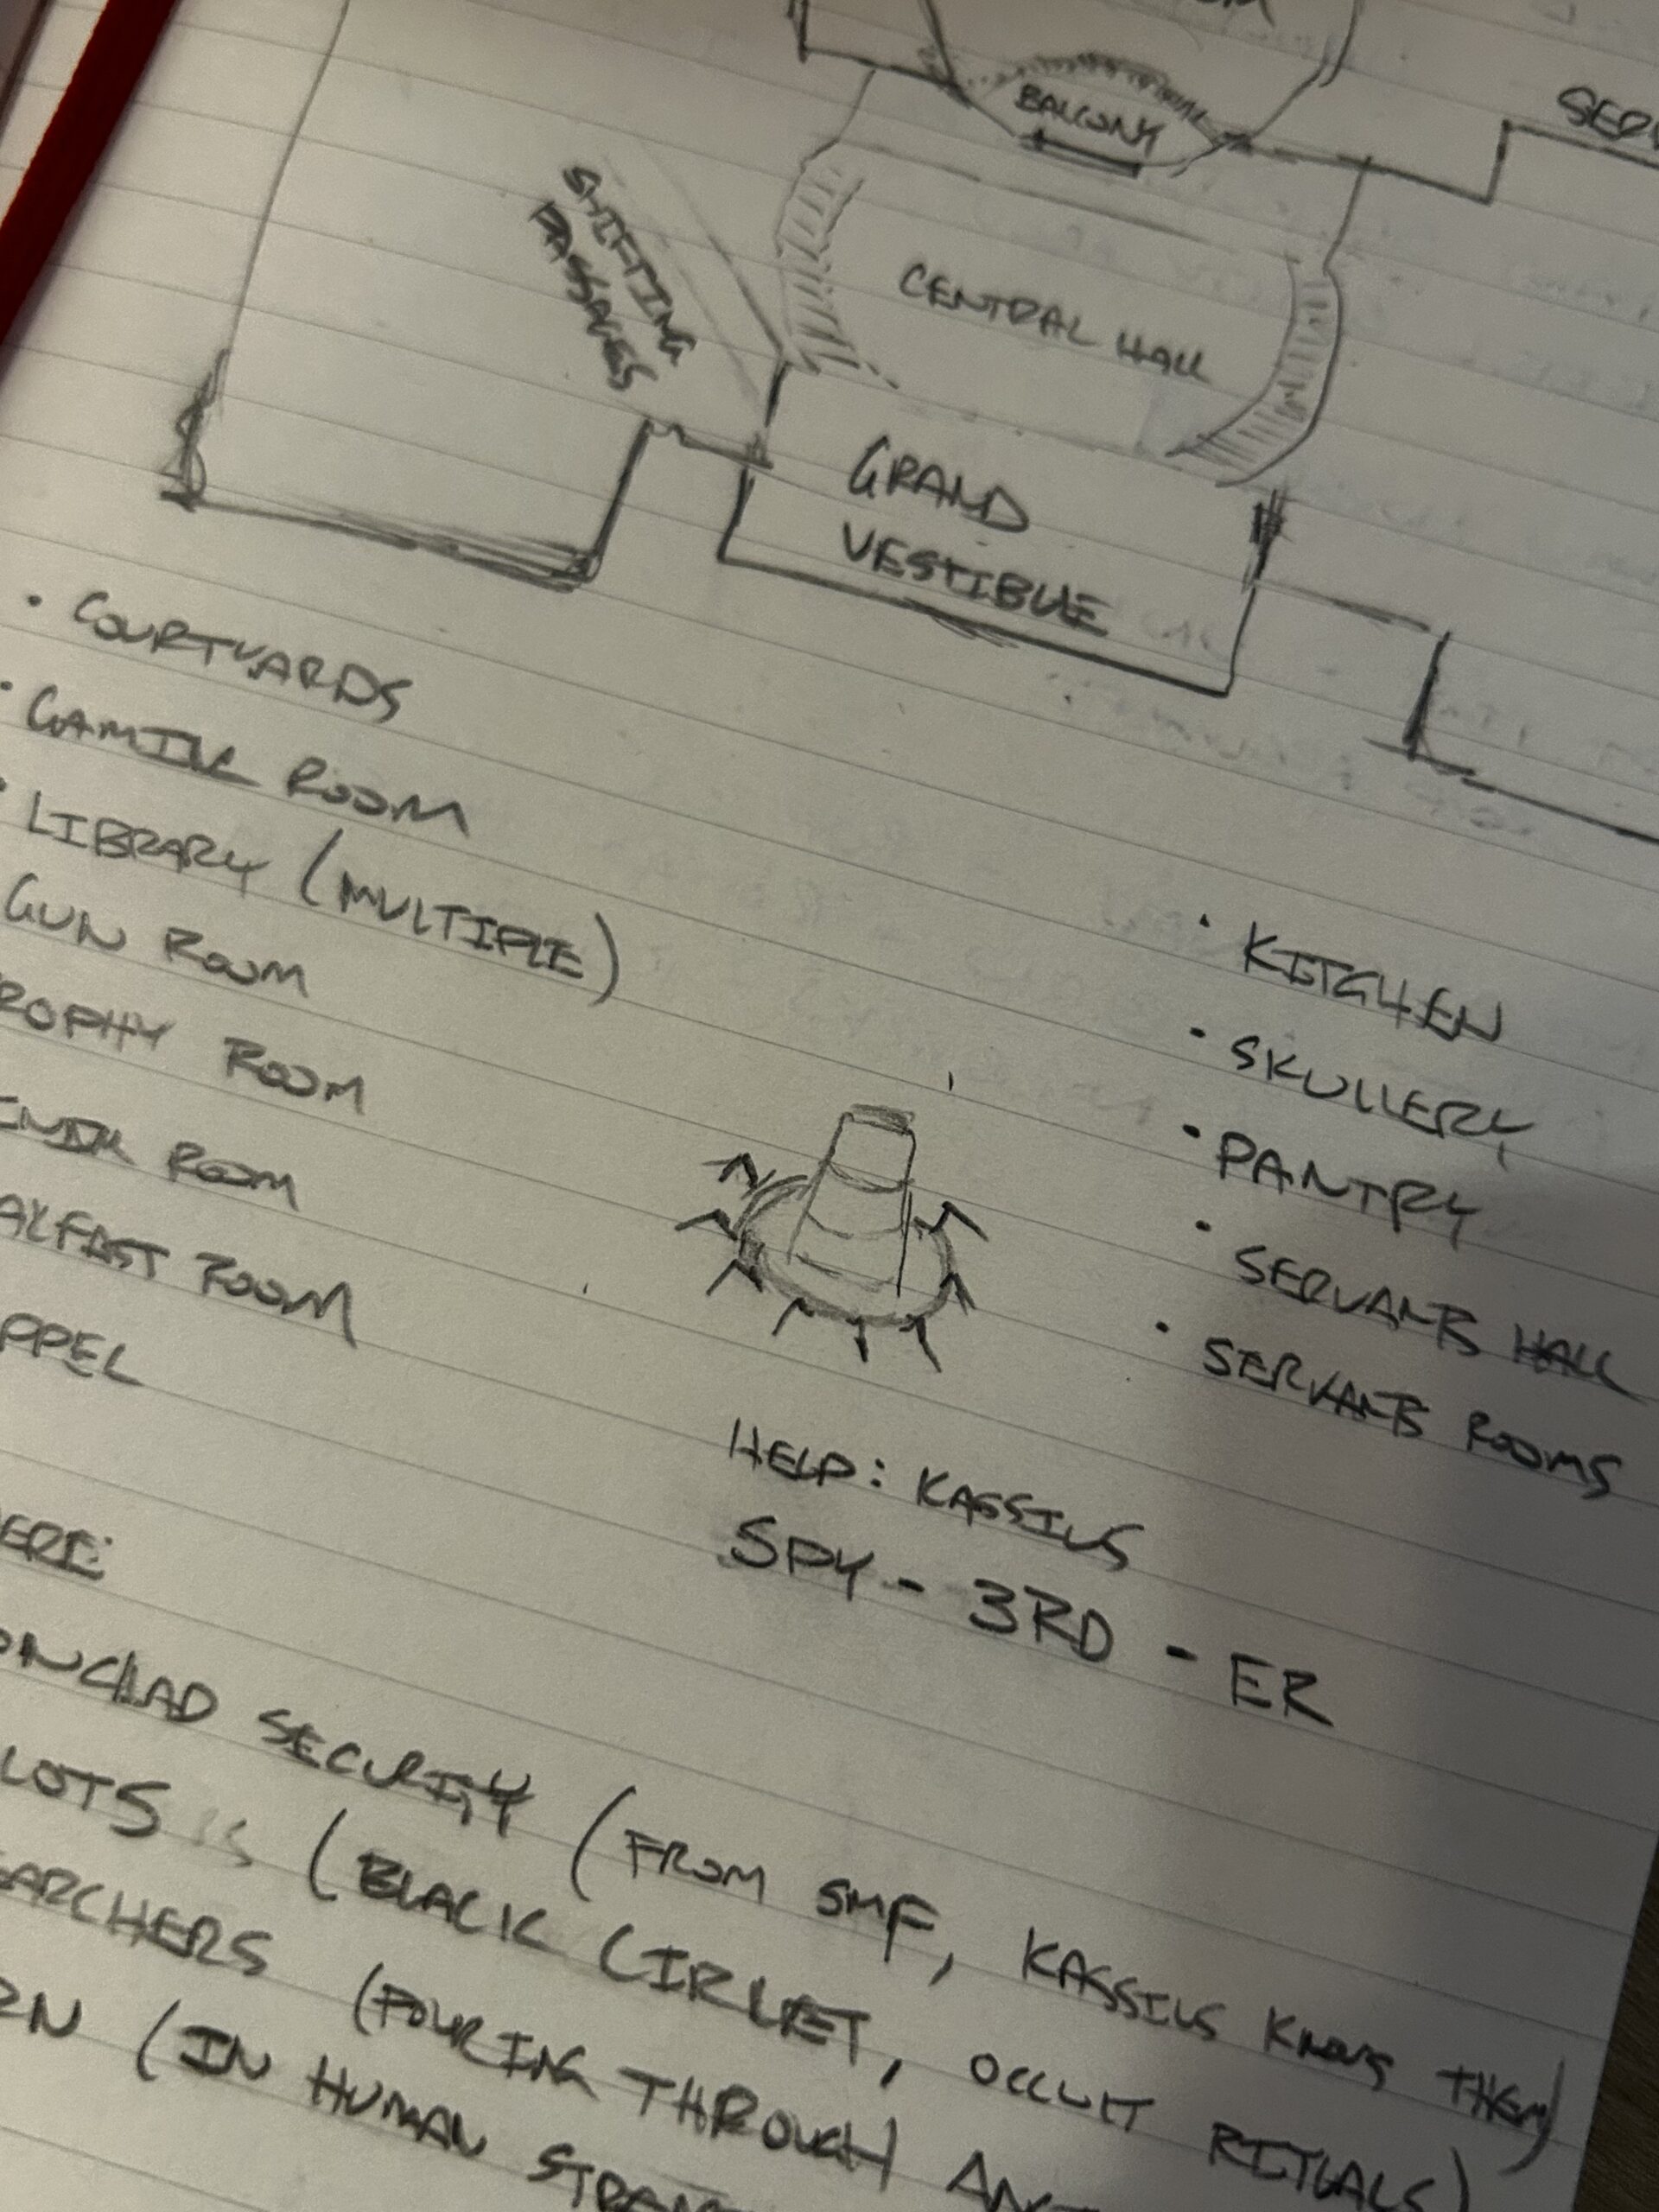 BALCONY
SHIFTING
PASSAGES
CENTRAL HALL
GRAND
VESTIBULE
• COURTYARDS
• GAMING ROOM
• LIBRARY (MULTIPLE)
GUN ROOM
ROPHY ROOM
ROOM
ROOM
PPEL
• KITCHEN
• SKULLERY
• PANTRY
• SERVANTS HALL
• SERVANTS ROOMS
HELP: KASSIUS
SPY - 3RD - ER
ERE:
ONCLAD SECURITY (FROM SMF, KASSIUS KNOWS THEM)
LOTS (BLACK CIRCLET, OCCULT RITUALS)
ARCHERS (POURING THROUGH
RN (IN HUMAN